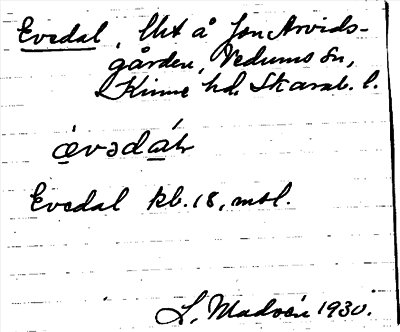 Evedal, lht å Jon Arvids-
gården, Vedums sn,
Kinne hd. Skarab. l.
èvǝdáḷ
Evedal kb. 18, mtl.
L. Madsén 1930.